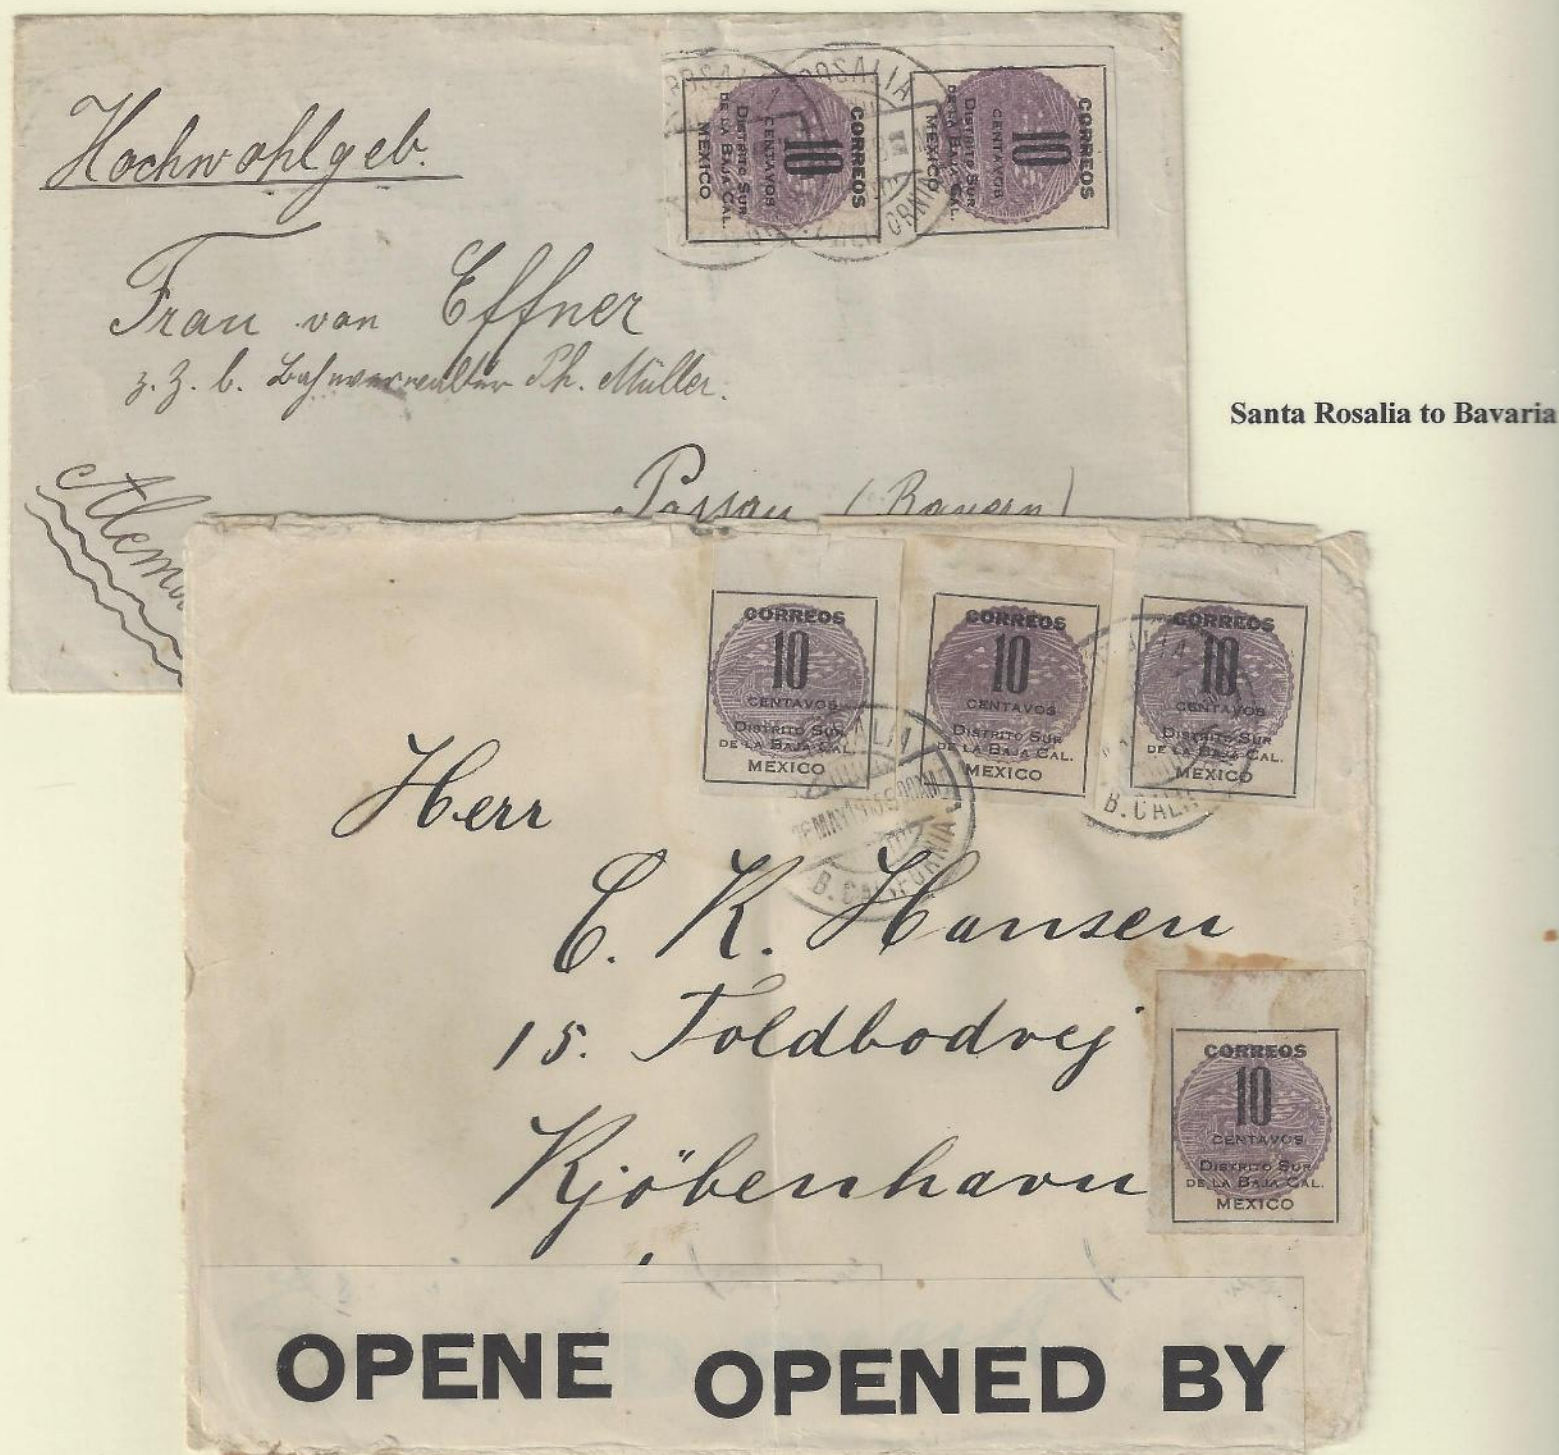 Hochwohlgeb.
Frau von Effner
z. Z. b. Bahnverwalter Ph. Müller.
Passau (Bayern)
CORREOS
10
CENTAVOS
DISTRITO SUR
DE LA BAJA CAL.
MEXICO
CORREOS
10
CENTAVOS
DISTRITO SUR
DE LA BAJA CAL.
MEXICO
Santa Rosalia to Bavaria
CORREOS
10
CENTAVOS
DISTRITO SUR
DE LA BAJA CAL.
MEXICO
CORREOS
10
CENTAVOS
DISTRITO SUR
DE LA BAJA CAL.
MEXICO
CORREOS
10
CENTAVOS
DISTRITO SUR
DE LA BAJA CAL.
MEXICO
B. CALIFORNIA
Herr
C. K. Hansen
15. Toldbodvej
Kjöbenhavn
CORREOS
10
CENTAVOS
DISTRITO SUR
DE LA BAJA CAL.
MEXICO
OPENE
OPENED BY